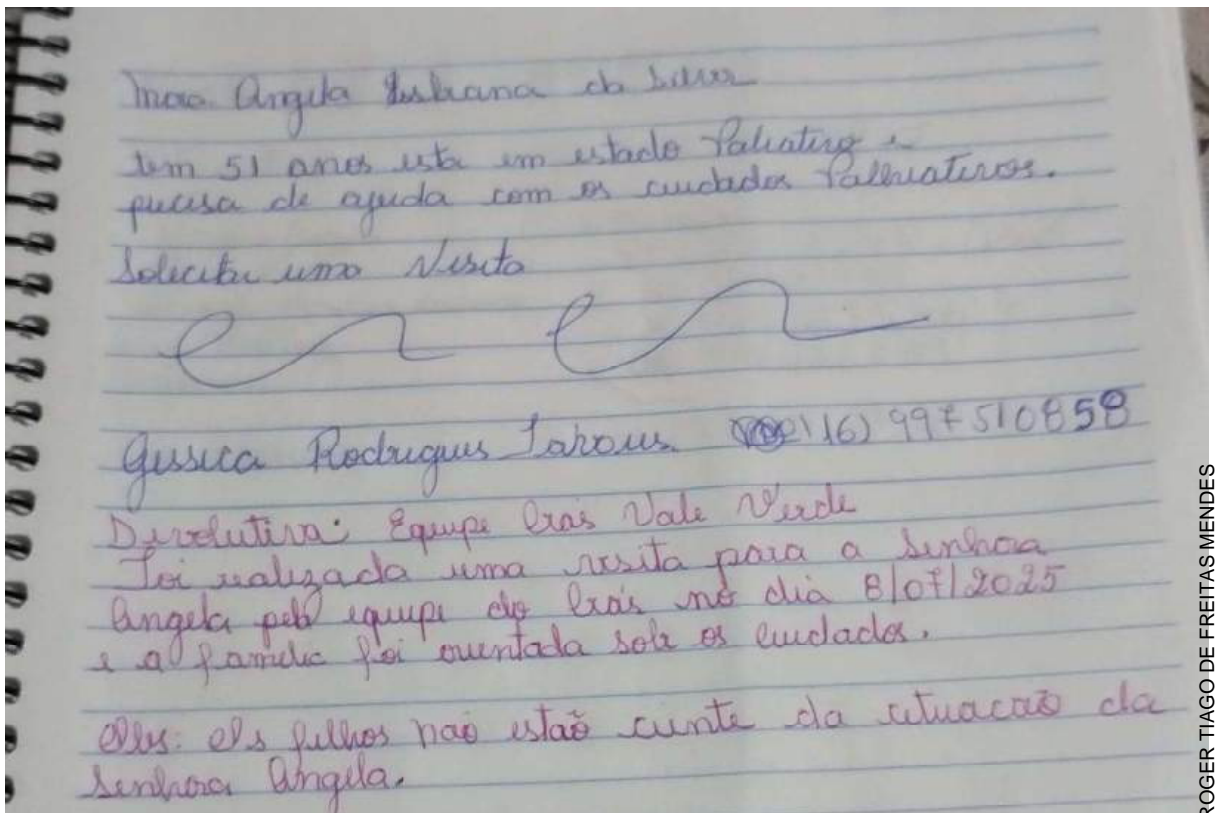 Angela da Silva
tem 51 anos esta em estado Paliativo e
precisa de ajuda com os cuidados Palhiativos.
Solicita uma Visita
Gessica Rodrigues 16) 997510858
Devolutiva: Equipe Cras Vale Verde
Foi realizada uma visita para a Senhora
Angela pela equipe do Cras no dia 8/07/2025
e a familia foi orientada sob os cuidados.
Obs: Os filhos não estão ciente da situacão da
Senhora Angela.
ROGER TIAGO DE FREITAS MENDES